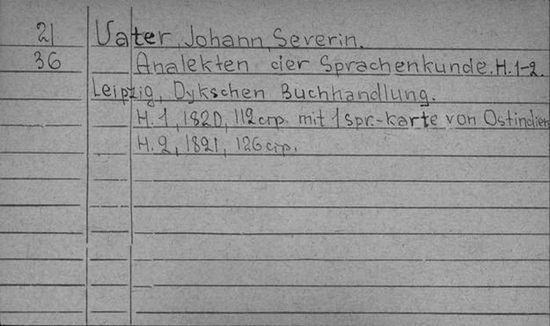 21 Vater, Johann, Severin.
36 Analekten der Sprachenkunde. H. 1-2.
Leipzig, Dykschen Buchhandlung.
H. 1, 1820, 112 стр. mit 1 Spr.-Karte von Ostindien
H. 2, 1821, 126 стр.